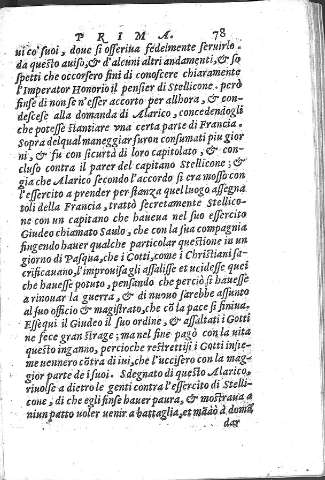 PRIMA. 78
ui co' suoi, doue si offeriua fedelmente seruirlo.
da questo auiso, & d'alcuni altri andamenti, & so
spetti che occorsero finì di conoscere chiaramente
l'Imperator Honorio il pensier di Stellicone. però
finse di non se n'esser accorto per allhora, & con-
descese alla domanda di Alarico, concedendogli
che potesse stantiare vna certa parte di Francia.
Sopra del qual maneggiar furon consumati piu gior
ni, & fu con sicurtà di loro capitolato, & con-
cluso contra il parer del capitano Stellicone; &
gia che Alarico secondo l'accordo si era mosso con
l'essercito a prender per stanza quel luogo assegna
toli della Francia, trattò secretamente Stellico-
ne con un capitano che haueua nel suo essercito
Giudeo chiamato Saulo, che con la sua compagnia
fingendo hauer qualche particolar questione in un
giorno di Pasqua, che i Gotti, come i Christiani sa-
crificauano, l'improuisagli assalisse et uccidesse quei
che hauesse potuto, pensando che perciò si hauesse
a rinouar la guerra, & di nuouo sarebbe assunto
al suo officio & magistrato, che cō la pace si finiua.
Essequì il Giudeo il suo ordine, & assaltati i Gotti
ne fece gran strage; ma nel fine pagò con la uita
questo inganno, percioche restrettisi i Gotti insie-
me uennero cōtra di lui, che l'uccisero con la mag-
gior parte de i suoi. Sdegnato di questo Alarico,
riuolse a dietro le genti contra l'essercito di Stelli-
cone, di che egli finse hauer paura, & mostraua a
niun patto uoler uenir a battaglia, et mādò a domā
dar